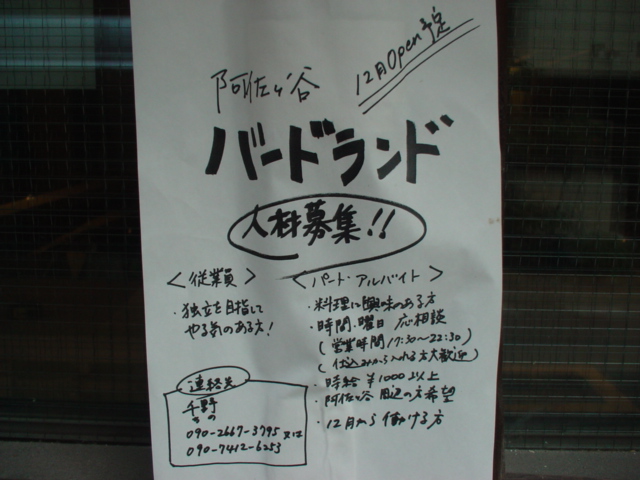 12月Open予定
阿佐ヶ谷
バードランド
人材募集!!
<従業員>
・独立を目指して
やる気のある方!
<パート・アルバイト>
・料理に興味のある方
・時間・曜日 応相談
(営業時間 17:30~22:30)
(仕込みから入れる方大歓迎)
・時給 ¥1000以上
・阿佐ヶ谷 周辺の方希望
・12月から働ける方
連絡先
千野
ちの
090-2667-3795 又は
090-7412-6253